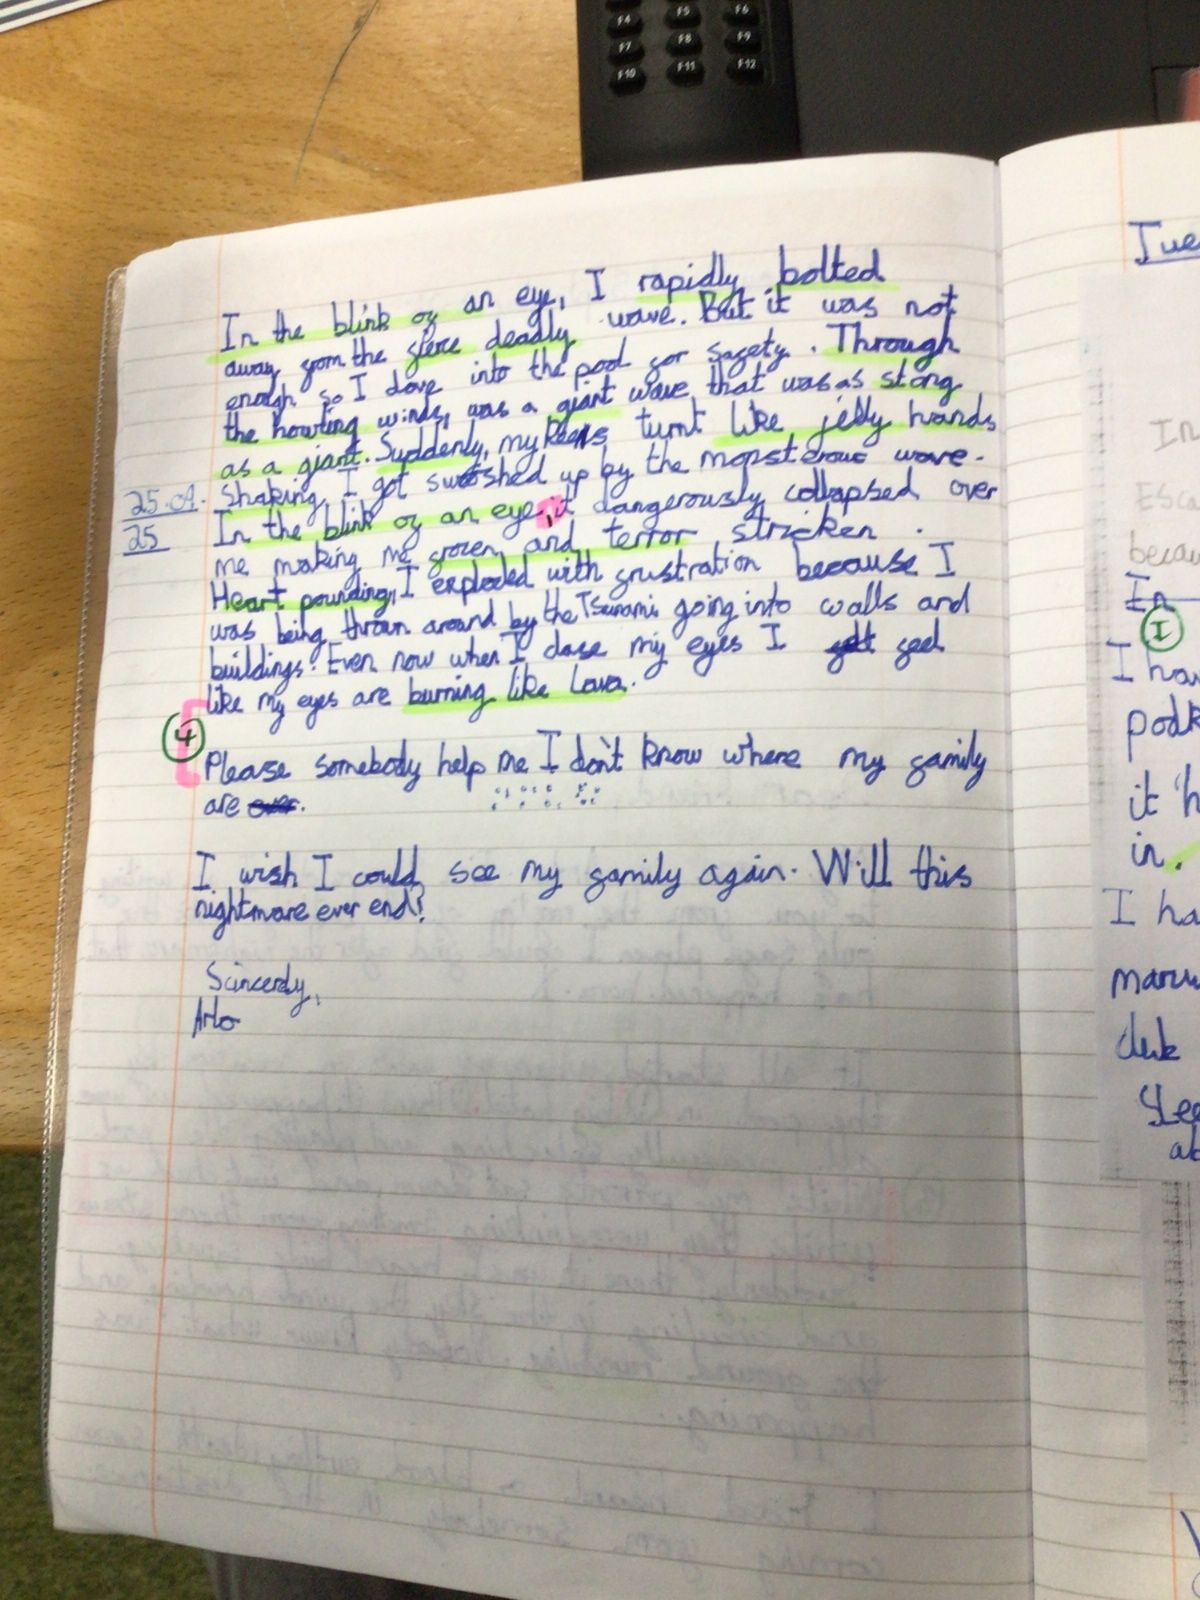 F4 F5 F6
F7 F8 F9
F10 F11 F12
In the blink of an eye, I rapidly bolted
away from the fierce deadly wave. But it was not
enough so I dove into the pool for safety. Through
the howling winds, was a giant wave that was as stong
as a giant. Suddenly, my turnt like jelly hands
Shaking, I got up by the monsterous wave.
25.04.
25
In the blink of an eye, it dangerously collapsed over
me making me frozen and terror stricken.
Heart pounding, I exploded with frustration because I
was being thrown around by the Tsunami going into walls and
buildings! Even now when I close my eyes I feel
like my eyes are burning like Lava.
4
Please somebody help me I don't know where my family
are
I wish I could see my family again. Will this
nightmare ever end?
Scincerely,
Arlo
Tue
In
Esca
becau
In
I
I hav
podk
it 'h
in.
I ha